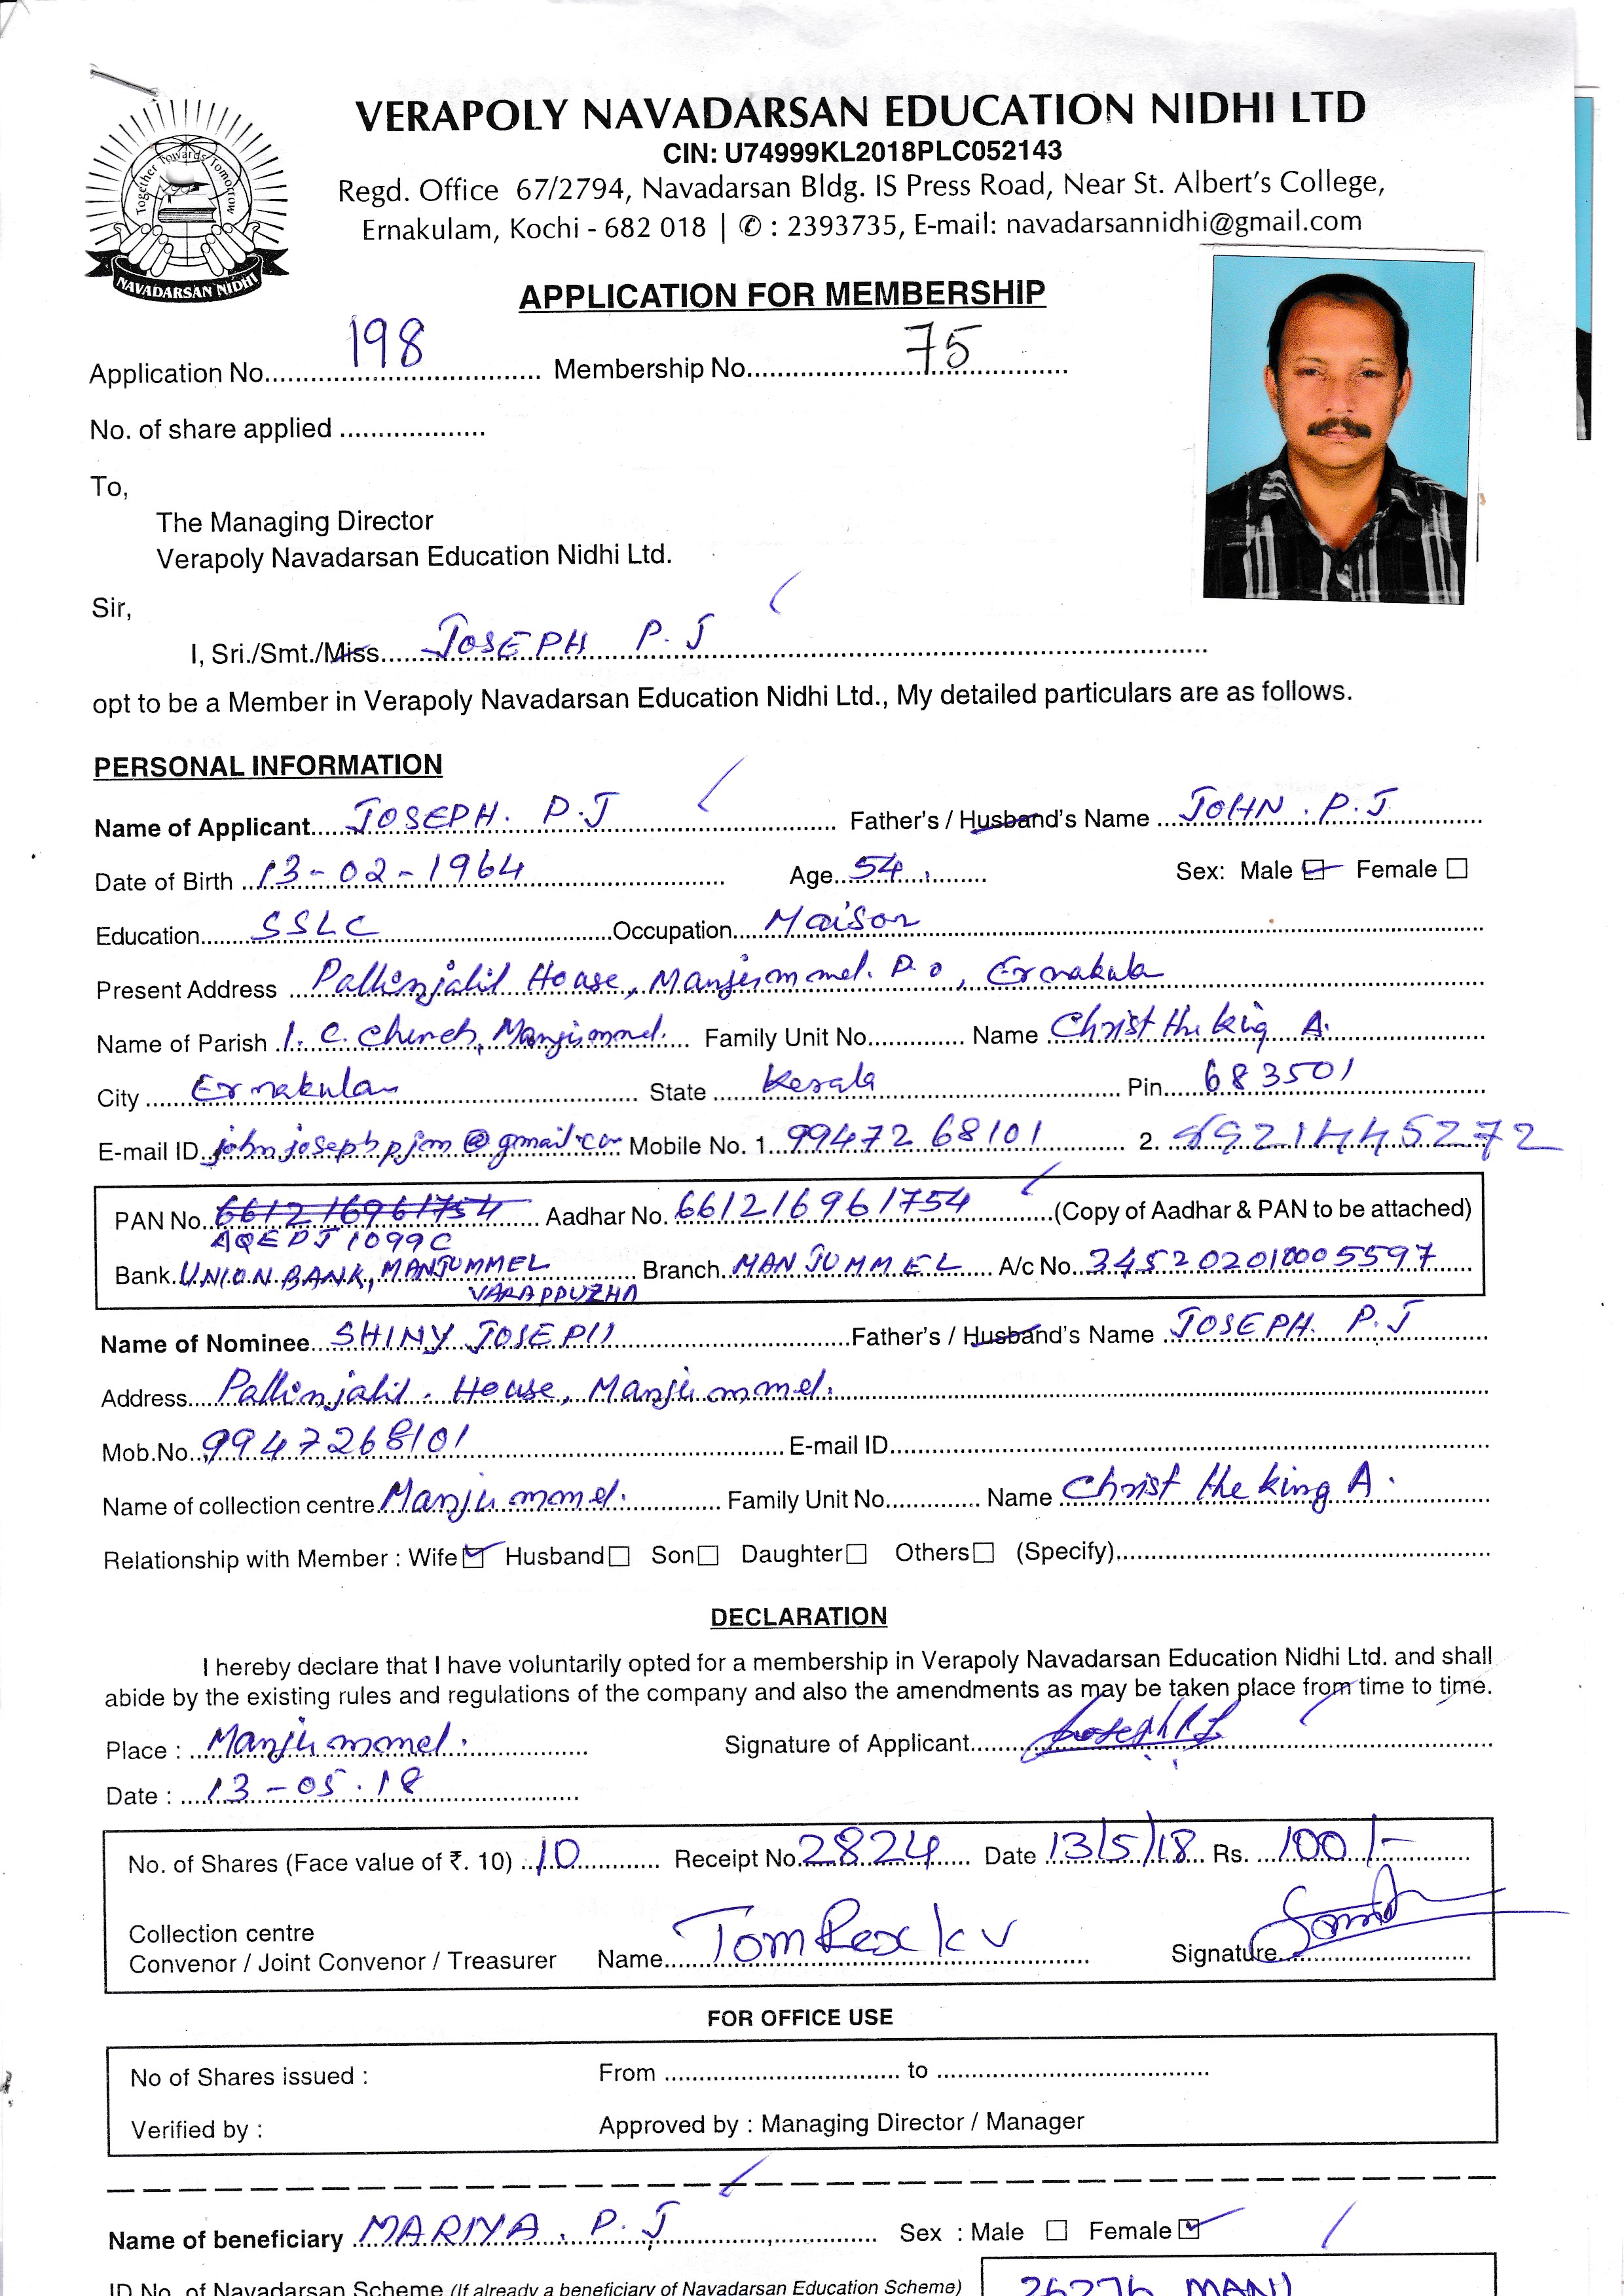 VERAPOLY NAVADARSAN EDUCATION NIDHI LTD
CIN: U74999KL2018PLC052143
Regd. Office 67/2794, Navadarsan Bldg. IS Press Road, Near St. Albert's College,
Ernakulam, Kochi - 682 018 | ✆ : 2393735, E-mail: navadarsannidhi@gmail.com
Together Towards Tomorrow
NAVADARSAN NIDHI
APPLICATION FOR MEMBERSHIP
Application No. 198 Membership No. 75
No. of share applied
To,
The Managing Director
Verapoly Navadarsan Education Nidhi Ltd.
Sir,
I, Sri./Smt./Miss. JOSEPH P.J
opt to be a Member in Verapoly Navadarsan Education Nidhi Ltd., My detailed particulars are as follows.
PERSONAL INFORMATION
Name of Applicant JOSEPH. P.J Father's / Husband's Name JOHN . P. J
Date of Birth 13-02-1964 Age 54 Sex: Male Female
Education SSLC Occupation Maison
Present Address House, P.O, Ernakula
Name of Parish I. C. Church, Manjummel. Family Unit No. Name Christ the king A.
City Ernakulam State Kerala Pin 683501
E-mail ID johnjosephpjm@gmail.com Mobile No. 1. 9947268101 2.
PAN No. 661216961754 Aadhar No. 661216961754 (Copy of Aadhar & PAN to be attached)
AQEPJ1099C
Bank UNION BANK, MANJUMMEL Branch MANJUMMEL A/c No. 345202010005597
VARAPPUZHA
Name of Nominee SHINY JOSEPH Father's / Husband's Name JOSEPH. P.J
Address House, Manjummel.
Mob.No. 9947268101 E-mail ID
Name of collection centre Manjummel. Family Unit No. Name Christ the king A.
Relationship with Member : Wife Husband Son Daughter Others (Specify)
DECLARATION
I hereby declare that I have voluntarily opted for a membership in Verapoly Navadarsan Education Nidhi Ltd. and shall
abide by the existing rules and regulations of the company and also the amendments as may be taken place from time to time.
Place : Manjummel. Signature of Applicant Joseph P.J
Date : 13-05.18
No. of Shares (Face value of ₹. 10) 10 Receipt No. 2824 Date 13/5/18 Rs. 100/-
Collection centre
Convenor / Joint Convenor / Treasurer Name Tom Rex K V Signature
FOR OFFICE USE
No of Shares issued : From to
Verified by : Approved by : Managing Director / Manager
Name of beneficiary MARIYA. P. J Sex : Male Female
ID No. of Navadarsan Scheme (If already a beneficiary of Navadarsan Education Scheme) 26276 MANJ